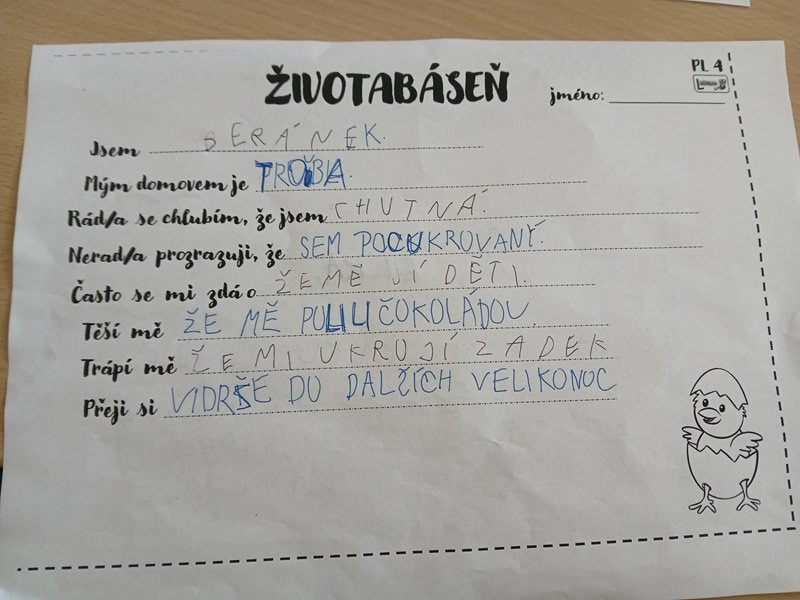 PL 4
ŽIVOTABÁSEŇ
jméno:
Jsem BERÁNEK.
Mým domovem je TROUBA.
Rád/a se chlubím, že jsem CHUTNÁ.
Nerad/a prozrazuji, že SEM POCUKROVANÝ.
Často se mi zdá o ŽE MĚ JÍ DĚTI.
Těší mě ŽE MĚ POLILI ČOKOLÁDOU.
Trápí mě ŽE MI UKROJÍ ZADEK
Přeji si VIDRŠE DO DALŠÍCH VELIKONOC